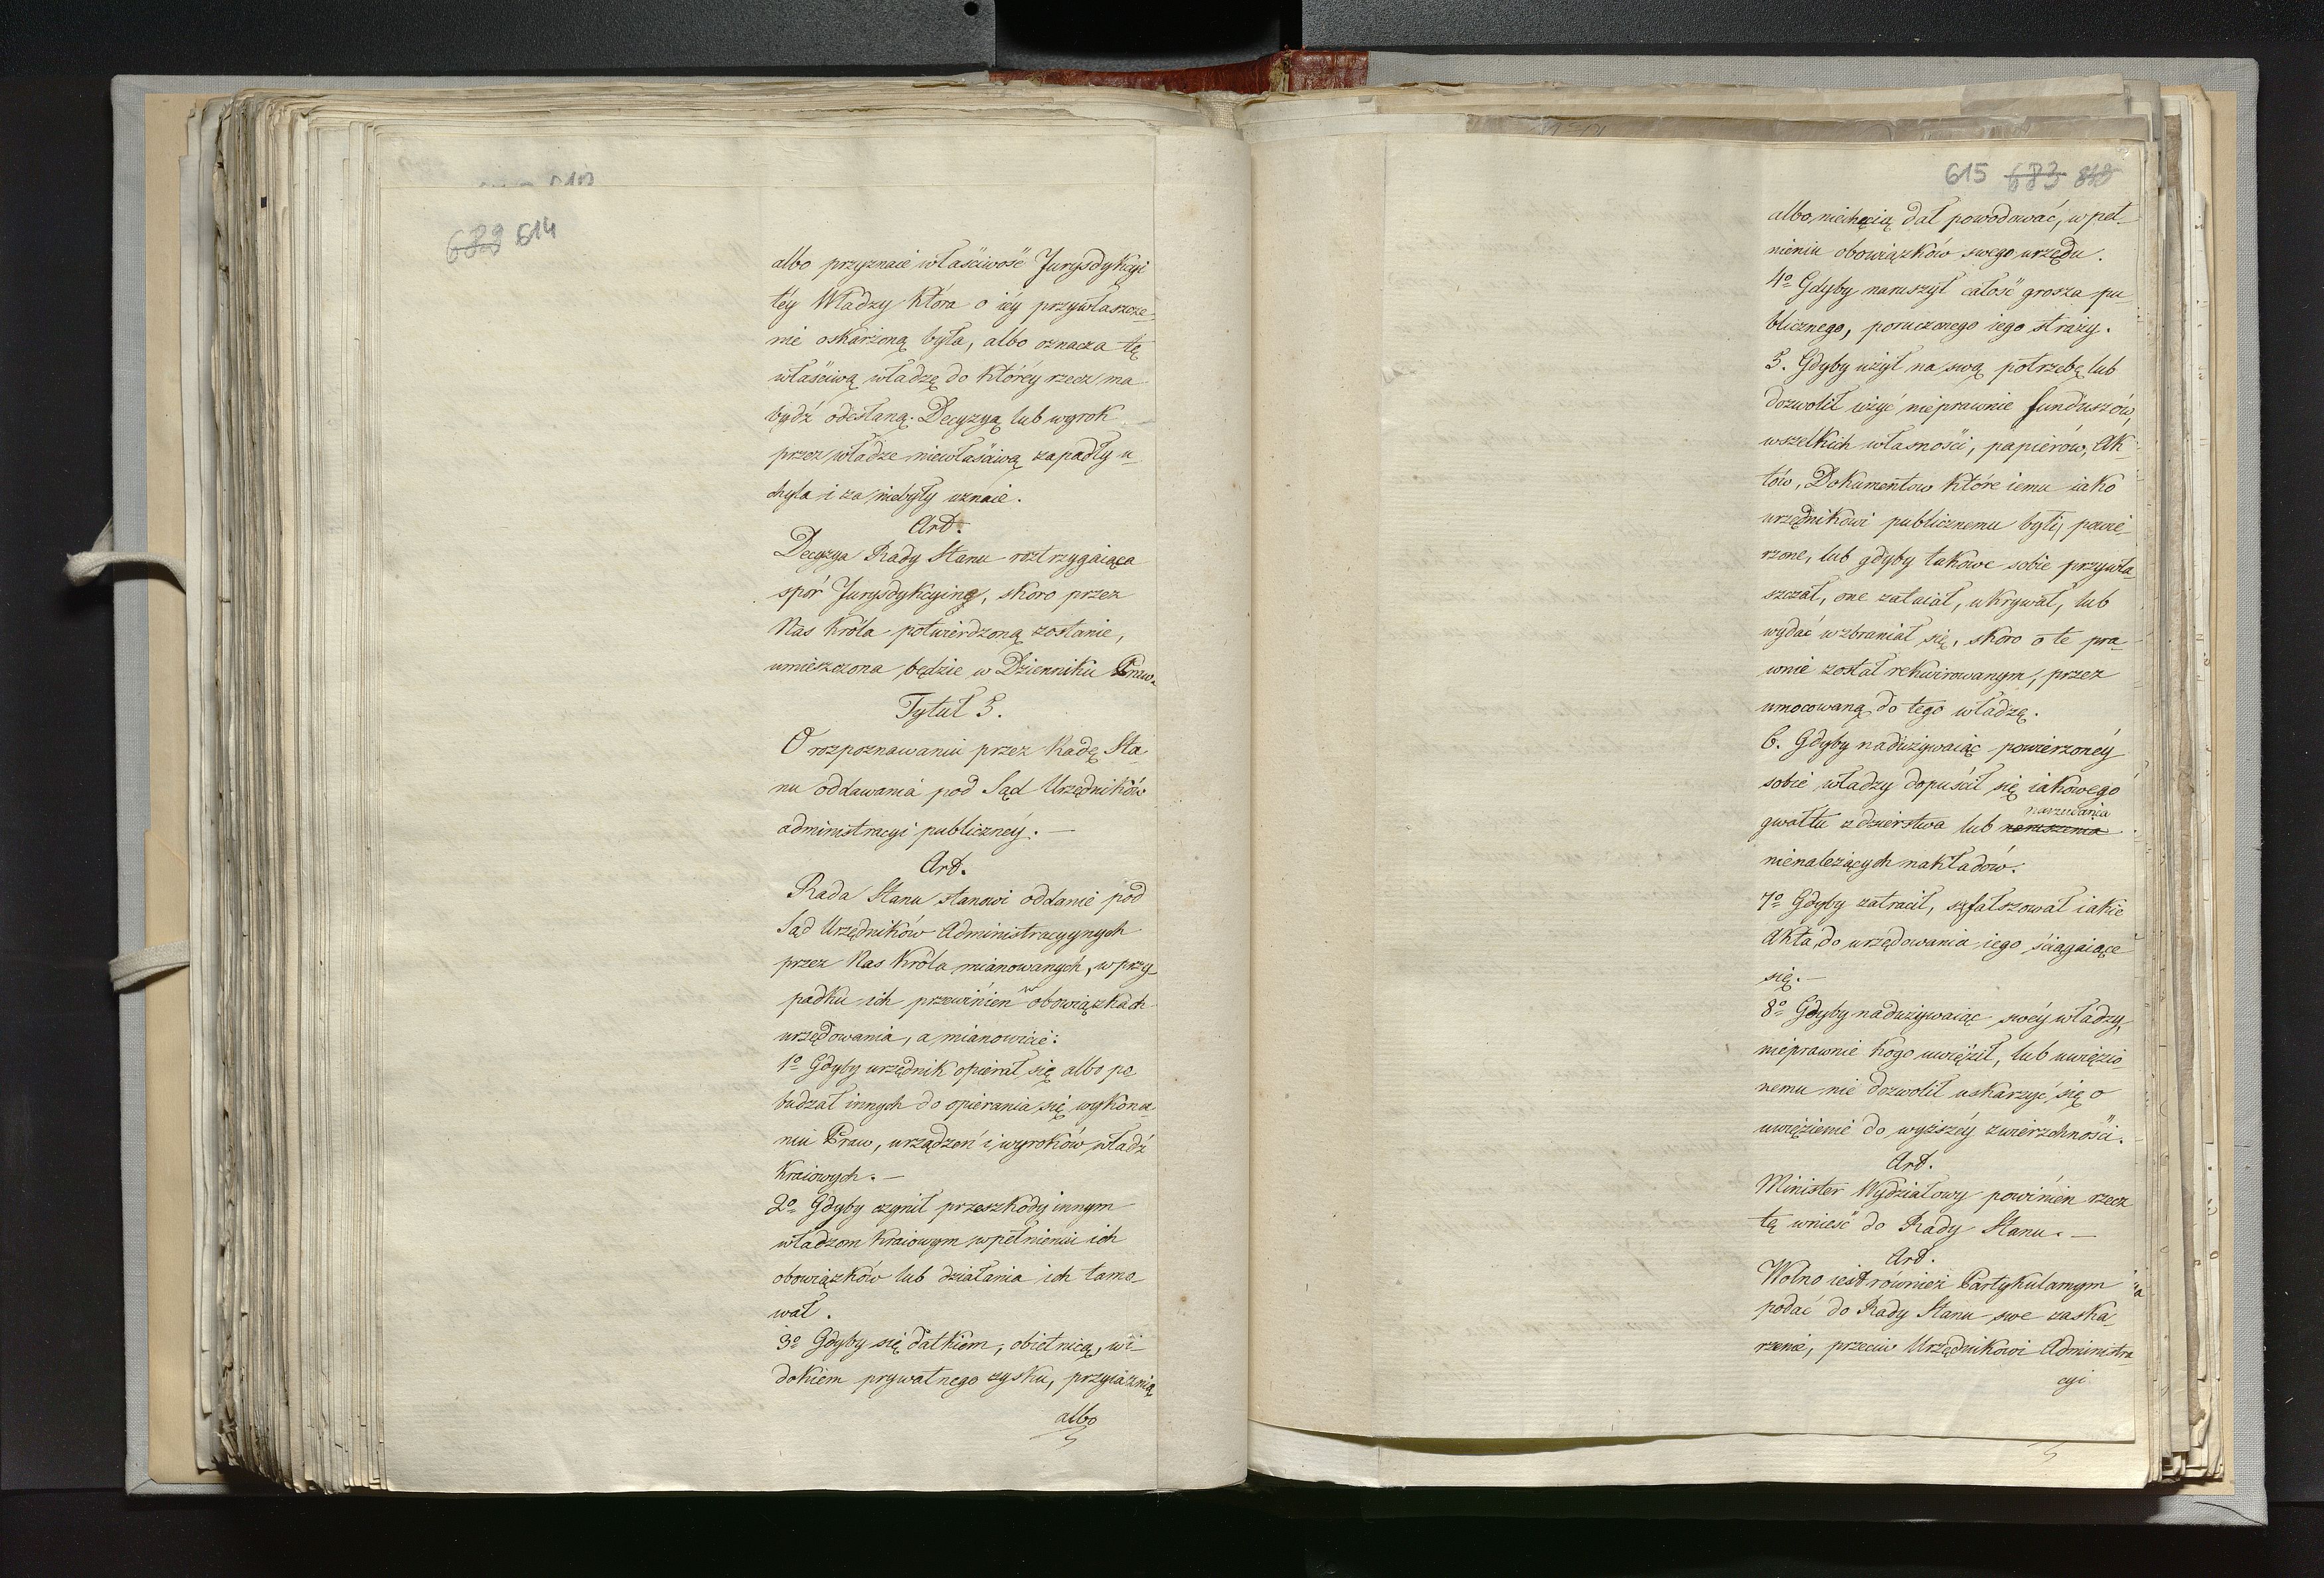 689 614
albo przyznaie właściwość Jurysdykcyi
téy Władzy która o iéy przywłaszcze-
nie oskarżoną była, albo oznacza tę
właściwą władzę do któréy rzecz ma
bydź odesłaną. Decyzyą lub wyrok
przez władze niewłaściwą zapadły u-
chyla i za niebyły uznaie.
Art.
Decyzya Rady Stanu roztrzygaiąca
spór Jurysdykcyiny, skoro przez
Nas Króla potwierdzoną zostanie,
umieszczona będzie w Dzienniku Praw.
Tytuł 5.
O rozpoznawaniu przez Radę Sta-
nu oddawania pod Sąd Urzędników
administracyi publicznéy. —
Art.
Rada Stanu stanowi oddanie pod
Sąd Urzędników Administracyynych
przez Nas Króla mianowanych, w przy-
padku ich przewinień w obowiązkach
urzędowania, a mianowicie:
1º Gdyby urzędnik opierał się albo po
budzał innych do opierania się wykona-
niu Praw, urządzeń i wyroków władz
Kraiowych. —
2º Gdyby czynił przeszkody innym
władzom Kraiowym w pełnieniu ich
obowiązków lub działania ich tamo-
wał.
3º Gdyby się datkiem, obietnicą, wi-
dokiem prywatnego zysku, przyiaźnią
albo
615 683
albo niechęcią dał powodować, w peł-
nieniu obowiązków swego urzędu.
4º Gdyby naruszył całość grosza pu-
blicznego, poruczonego iego straży.
5. Gdyby użył na swą potrzebę lub
dozwolił użyć nieprawnie funduszów,
wszelkich własności, papierów, Ak-
tów, Dokumentow które iemu iako
urzędnikowi publicznemu były powie-
rzone, lub gdyby takowe sobie przywła-
szczał, one zataiał, ukrywał, lub
wydać wzbraniał się, skoro o te pra-
wnie został rekwirowanym, przez
umocowaną do tego władzę.
6. Gdyby nadużywaiąc powierzonéy
sobie władzy dopuścił się iakowego
narzucania
gwałtu zdzierstwa lub naruszenia
nienależących nakładów.
7º Gdyby zatracił, sfałszował iakie
Akta do urzędowania iego ściągaiące
się. —
8º Gdyby nadużywaiąc swéy władzy,
nieprawnie kogo uwięził, lub uwięzio-
nemu nie dozwolił uskarżyć się o
uwięzienie do wyższéy zwierzchności.
Art.
Minister Wydziałowy powinien rzecz
tę wnieść do Rady Stanu. —
Art.
Wolno iest również Partykularnym
podać do Rady Stanu swe zaska-
rżenie, przeciw Urzędnikowi Administra
cyi